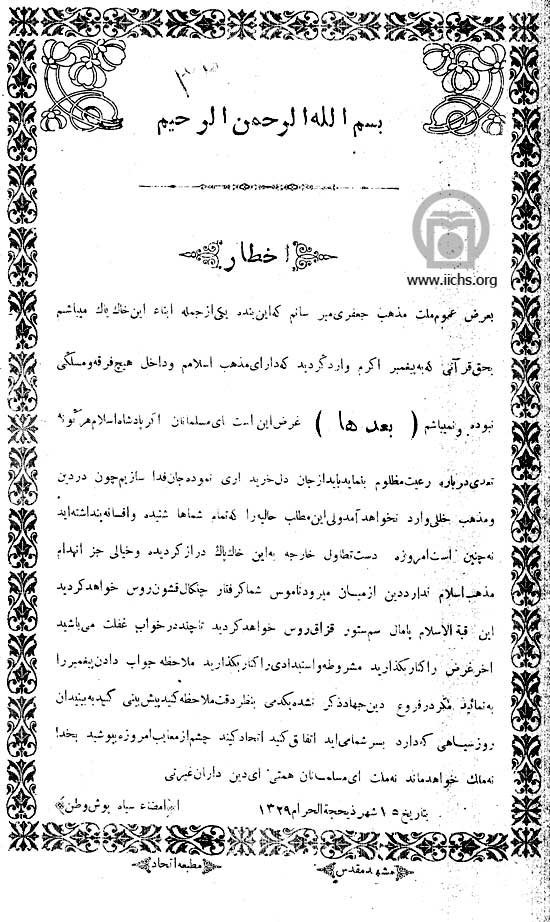 بسم الله الرحمن الرحیم
www.iichs.org
اخطار
بعرض عموم ملت مذهب جعفری میرسانم که این بنده یکی از جمله ابناء این خاك پاك میباشم
بحق قرآنی که به پیغمبر اکرم وارد گردید که دارای مذهب اسلامم و داخل هیچ فرقه و مسلکی
نبوده و نمیباشم ( بعدها ) غرض این است ای مسلمانان اگر پادشاه اسلام هرگونه
تعدی درباره رعیت مظلوم بنماید باید از جان دل خریداری نموده جان فدا سازیم چون در دین
و مذهب خللی وارد نخواهد آمد ولی این مطلب حالیه را که تمام شماها شنیده و افسانه پنداشته اید
نه چنین است امروزه دست تطاول خارجه به این خاك پاك دراز گردیده و خیالی جز انهدام
مذهب اسلام ندارد دین از میان میرود ناموس شما گرفتار چنگال قشون روس خواهد گردید
این قبة الاسلام پامال سم ستور قزاق روس خواهد گردید تا چند در خواب غفلت می باشید
اخر غرض را کنار بگذارید مشروطه و استبدادی را کنار بگذارید ملاحظه جواب دادن پیغمبر را
به نمائید مگر در فروع دین جهاد ذکر نشده یکدمی بنظر دقت ملاحظه کنید پیش بینی کنید به بنیدان
روز سیاهی که دارد بسر شما می اید اتفاق کنید اتحاد کنید چشم از معایب امروزه بپوشید بخدا
نه ملك خواهد ماند نه ملت ای مسلمانان همتی ای دین داران غیرتی
بتاریخ ۱۵ شهر ذیحجة الحرام ۱۳۲۹ امضاء سیاه پوش وطن
مشهد مقدس مطبعه اتحاد